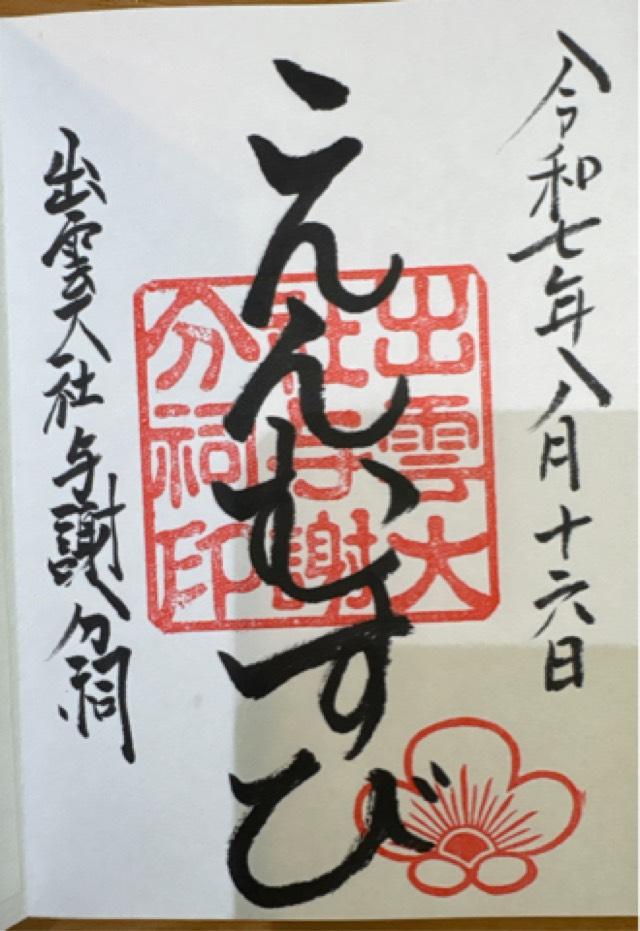 令和七年八月十六日
えんむすび
出雲大
社与謝
分祠印
出雲大社与謝分祠